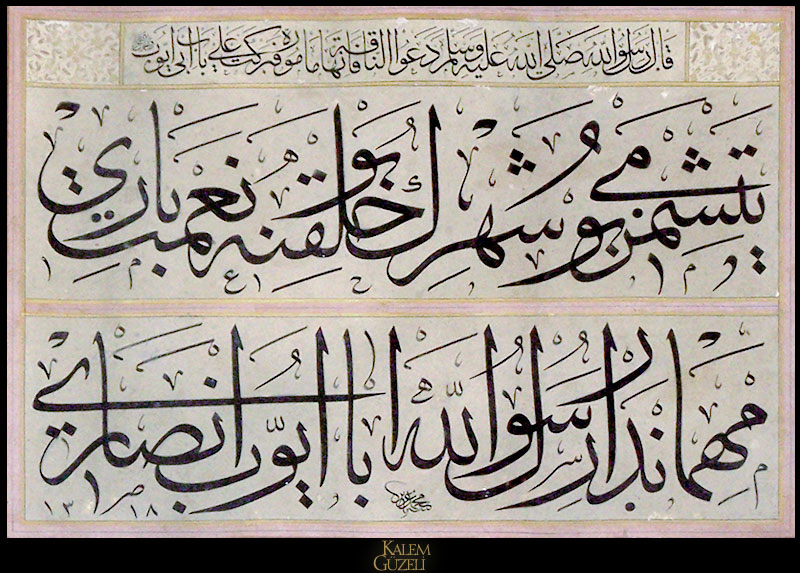 قال رسول الله صلى الله عليه وسلم دعوا الناقة فانها مامورة فبركت على باب ابى ايوب
يتشمزمى بو شهرك خلقنه بو نعمت بارى
مهماندار رسول الله ابا ايوب انصارى
١٣١٨
KALEM
GÜZELİ